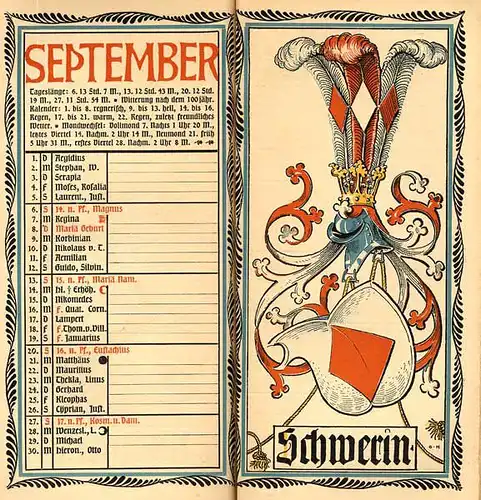 SEPTEMBER
Tageslänge: 6. 13 Std. 7 M., 13. 12 Std. 43 M., 20. 12 Std.
19 M., 27. 11 Std. 54 M. • Witterung nach dem 100jähr.
Kalender: 1. bis 8. regnerisch, 9. bis 13. hell, 14. bis 16.
Regen, 17. bis 21. warm, 22. Regen, zuletzt freundliches
Wetter. • Mondwechsel: Vollmond 7. Nachts 1 Uhr 20 M.,
letztes Viertel 14. Nachm. 2 Uhr 14 M., Neumond 21. früh
5 Uhr 31 M., erstes Viertel 28. Nachm. 2 Uhr 8 M.
1. D Aegidius
2. M Stephan, W.
3. D Serapia
4. F Moses, Rosalia
5. S Laurent., Just.
6. S 14. n. Pf., Magnus
7. M Regina
8. D Mariä Geburt
9. M Korbinian
10. D Nikolaus v. T.
11. F Aemilian
12. S Guido, Silvin.
13. S 15. n. Pf., Mariä Nam.
14. M hl. † Erhöh.
15. D Nikomedes
16. M f. Quat. Corn.
17. D Lampert
18. F f. Thom. v. Vill.
19. S f. Januarius
20. S 16. n. Pf., Eustachius
21. M Matthäus
22. D Mauritius
23. M Thekla, Linus
24. D Gerhard
25. F Kleophas
26. S Cyprian, Just.
27. S 17. n. Pf., Kosm. u. Dam.
28. M Wenzesl., L.
29. D Michael
30. M Hieron., Otto
Schwerin.